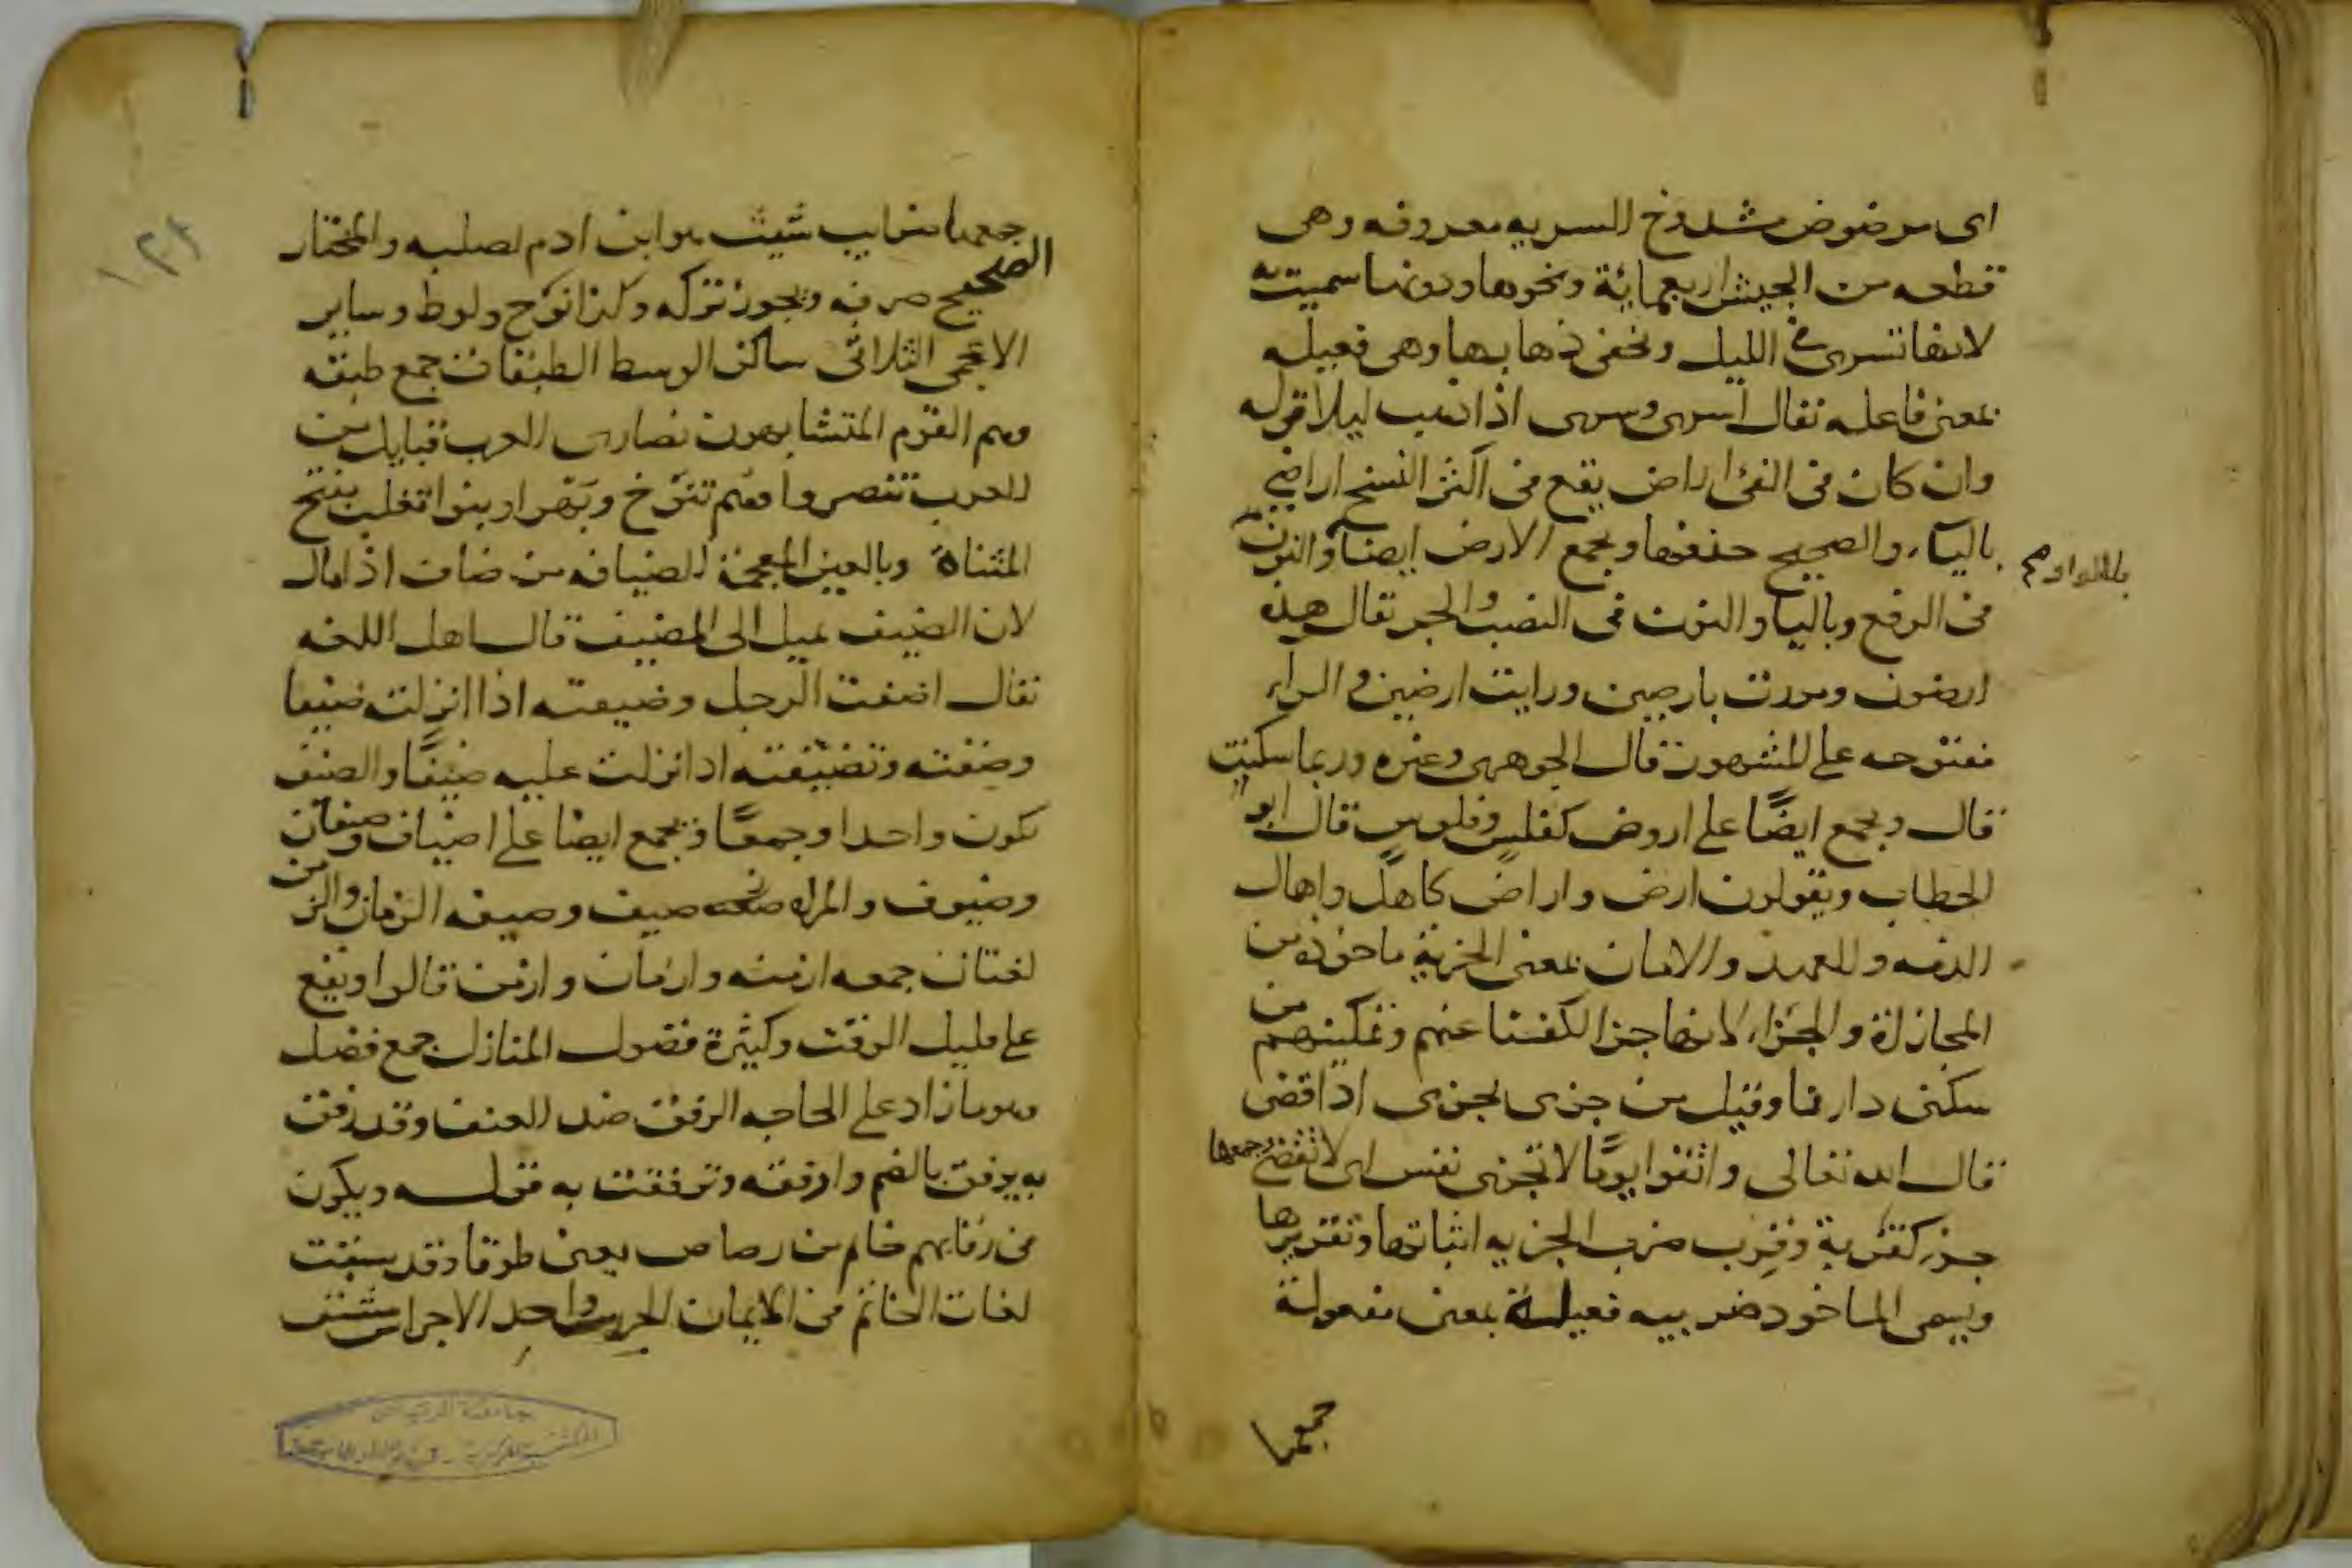 اى مرضوض مشدوخ السريه معروفه وهى
قطعه من الجيش اربعماية ونحوها ودونها سميت به
لانها تسرى فى الليل ويخفى ذهابها وهى فعيله
بمعنى فاعله يقال اسرى وسرى اذا ذهب ليلا قوله
وان كان فى الفئ اراض يقع فى اكثر النسخ اراضي
بالياء والصحيح حذفها وجمع الارض ايضا والنون
بالواو صح
فى الرفع وباليا والنون فى النصب والجر تقال هذه
ارضون ومررت بارضين ورايت ارضين و الراء
مفتوحه على المشهور قال الجوهرى وغيره وربما سكنت
قال ويجمع ايضًا على اروض كفلس وفلوس قال ابو
الخطاب ويقولون ارض واراض كاهل واهال
الذمه والعهد والامان بمعنى الجزية ماخوذه من
المجازاة والجزاء لانها جزا لكفنا عنهم وتمكينهم من
سكنى دارنا وقيل من جزى يجزى اذا قضى
قال الله تعالى واتقوا يومًا لا تجزى نفس اى لا تقضى وجمعها
جزى كقربة وقرب ضرب الجزيه اثباتها وتقريرها
ويسمى الماخوذ ضريبيه فعيلة بمعنى مفعولة
جمعها
جمعها ضرايب شيث هو ابن ادم لصلبه والمختار
الصحيح صرفه ويجوز تركه وكذا نوح ولوط وساير
الاعجمى الثلاثى ساكن الوسط الطبقات جمع طبقه
وهم القوم المتشابهون نصارى العرب قبايل من
العرب تنصروا منهم تنوخ وبهرا وبنوا تغلب بفتح
المثناة وبالغين المعجمة الضيافه من ضاف اذا مال
لان الضيف يميل الى المضيف قال اهل اللغه
يقال اضفت الرجل وضيفته اذا انزلته ضيفا
وضفته وتضيفته اذا نزلت عليه ضيفًا والضيف
يكون واحدا وجمعًا ويجمع ايضا على اضياف وضيفان
وضيوف والمراه ضيف وضيفه الزمان والزمن
لغتان جمعه ازمنه وازمان وازمن قالوا ويقع
على قليل الوقت وكثيرة فضول المنازل جمع فضل
وهو ما زاد على الحاجه الرفق ضد العنف وقد رفق
به يرفق بالضم وارفقه وترفقت به قوله ويكون
فى رقابهم خاتم من رصاص يعنى طوقا وقد سبقت
لغات الخاتم فى الايمان الجرس واحد الاجراس
١٢٢
جامعة الرياض